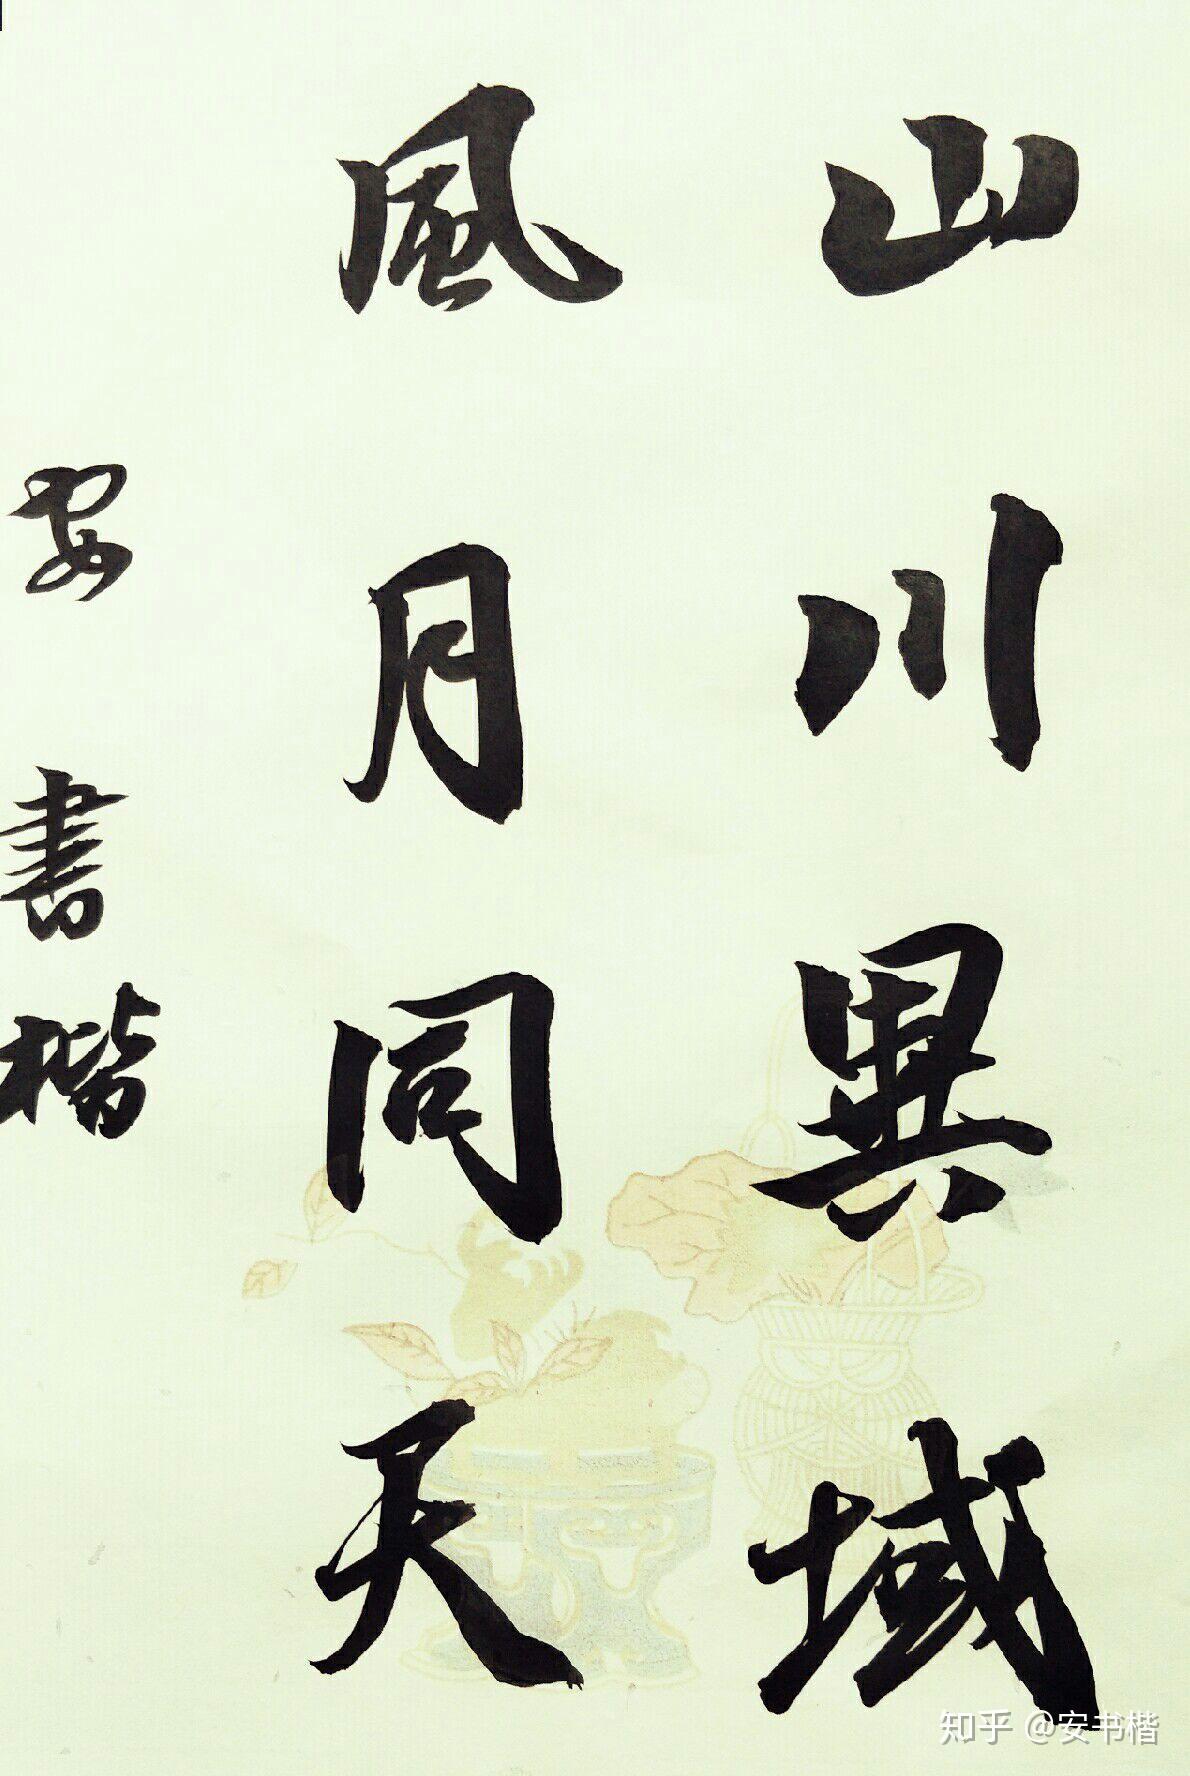 山川異域
風月同天
安書楷
知乎 @安书楷